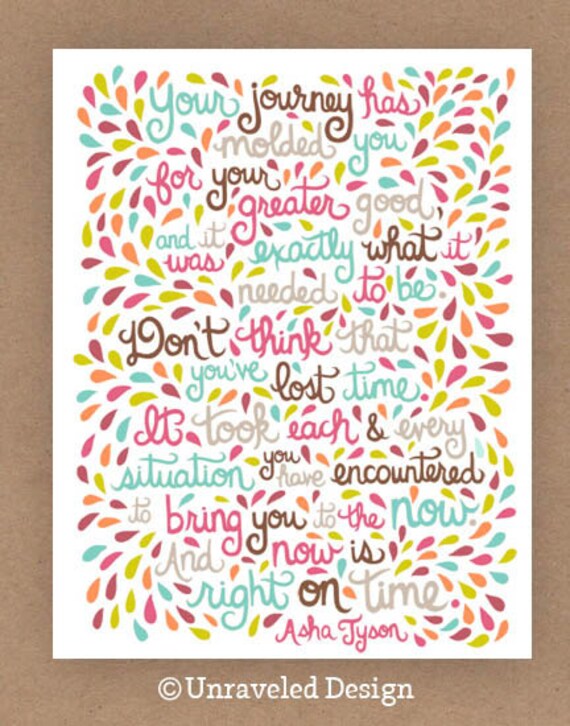 Your journey has
molded you
for your
greater good,
and it
was exactly what it
needed to be.
Don't think that
you've lost time.
It took each & every
situation you have encountered
to bring you to the now.
And now is
right on time.
Asha Tyson
© Unraveled Design